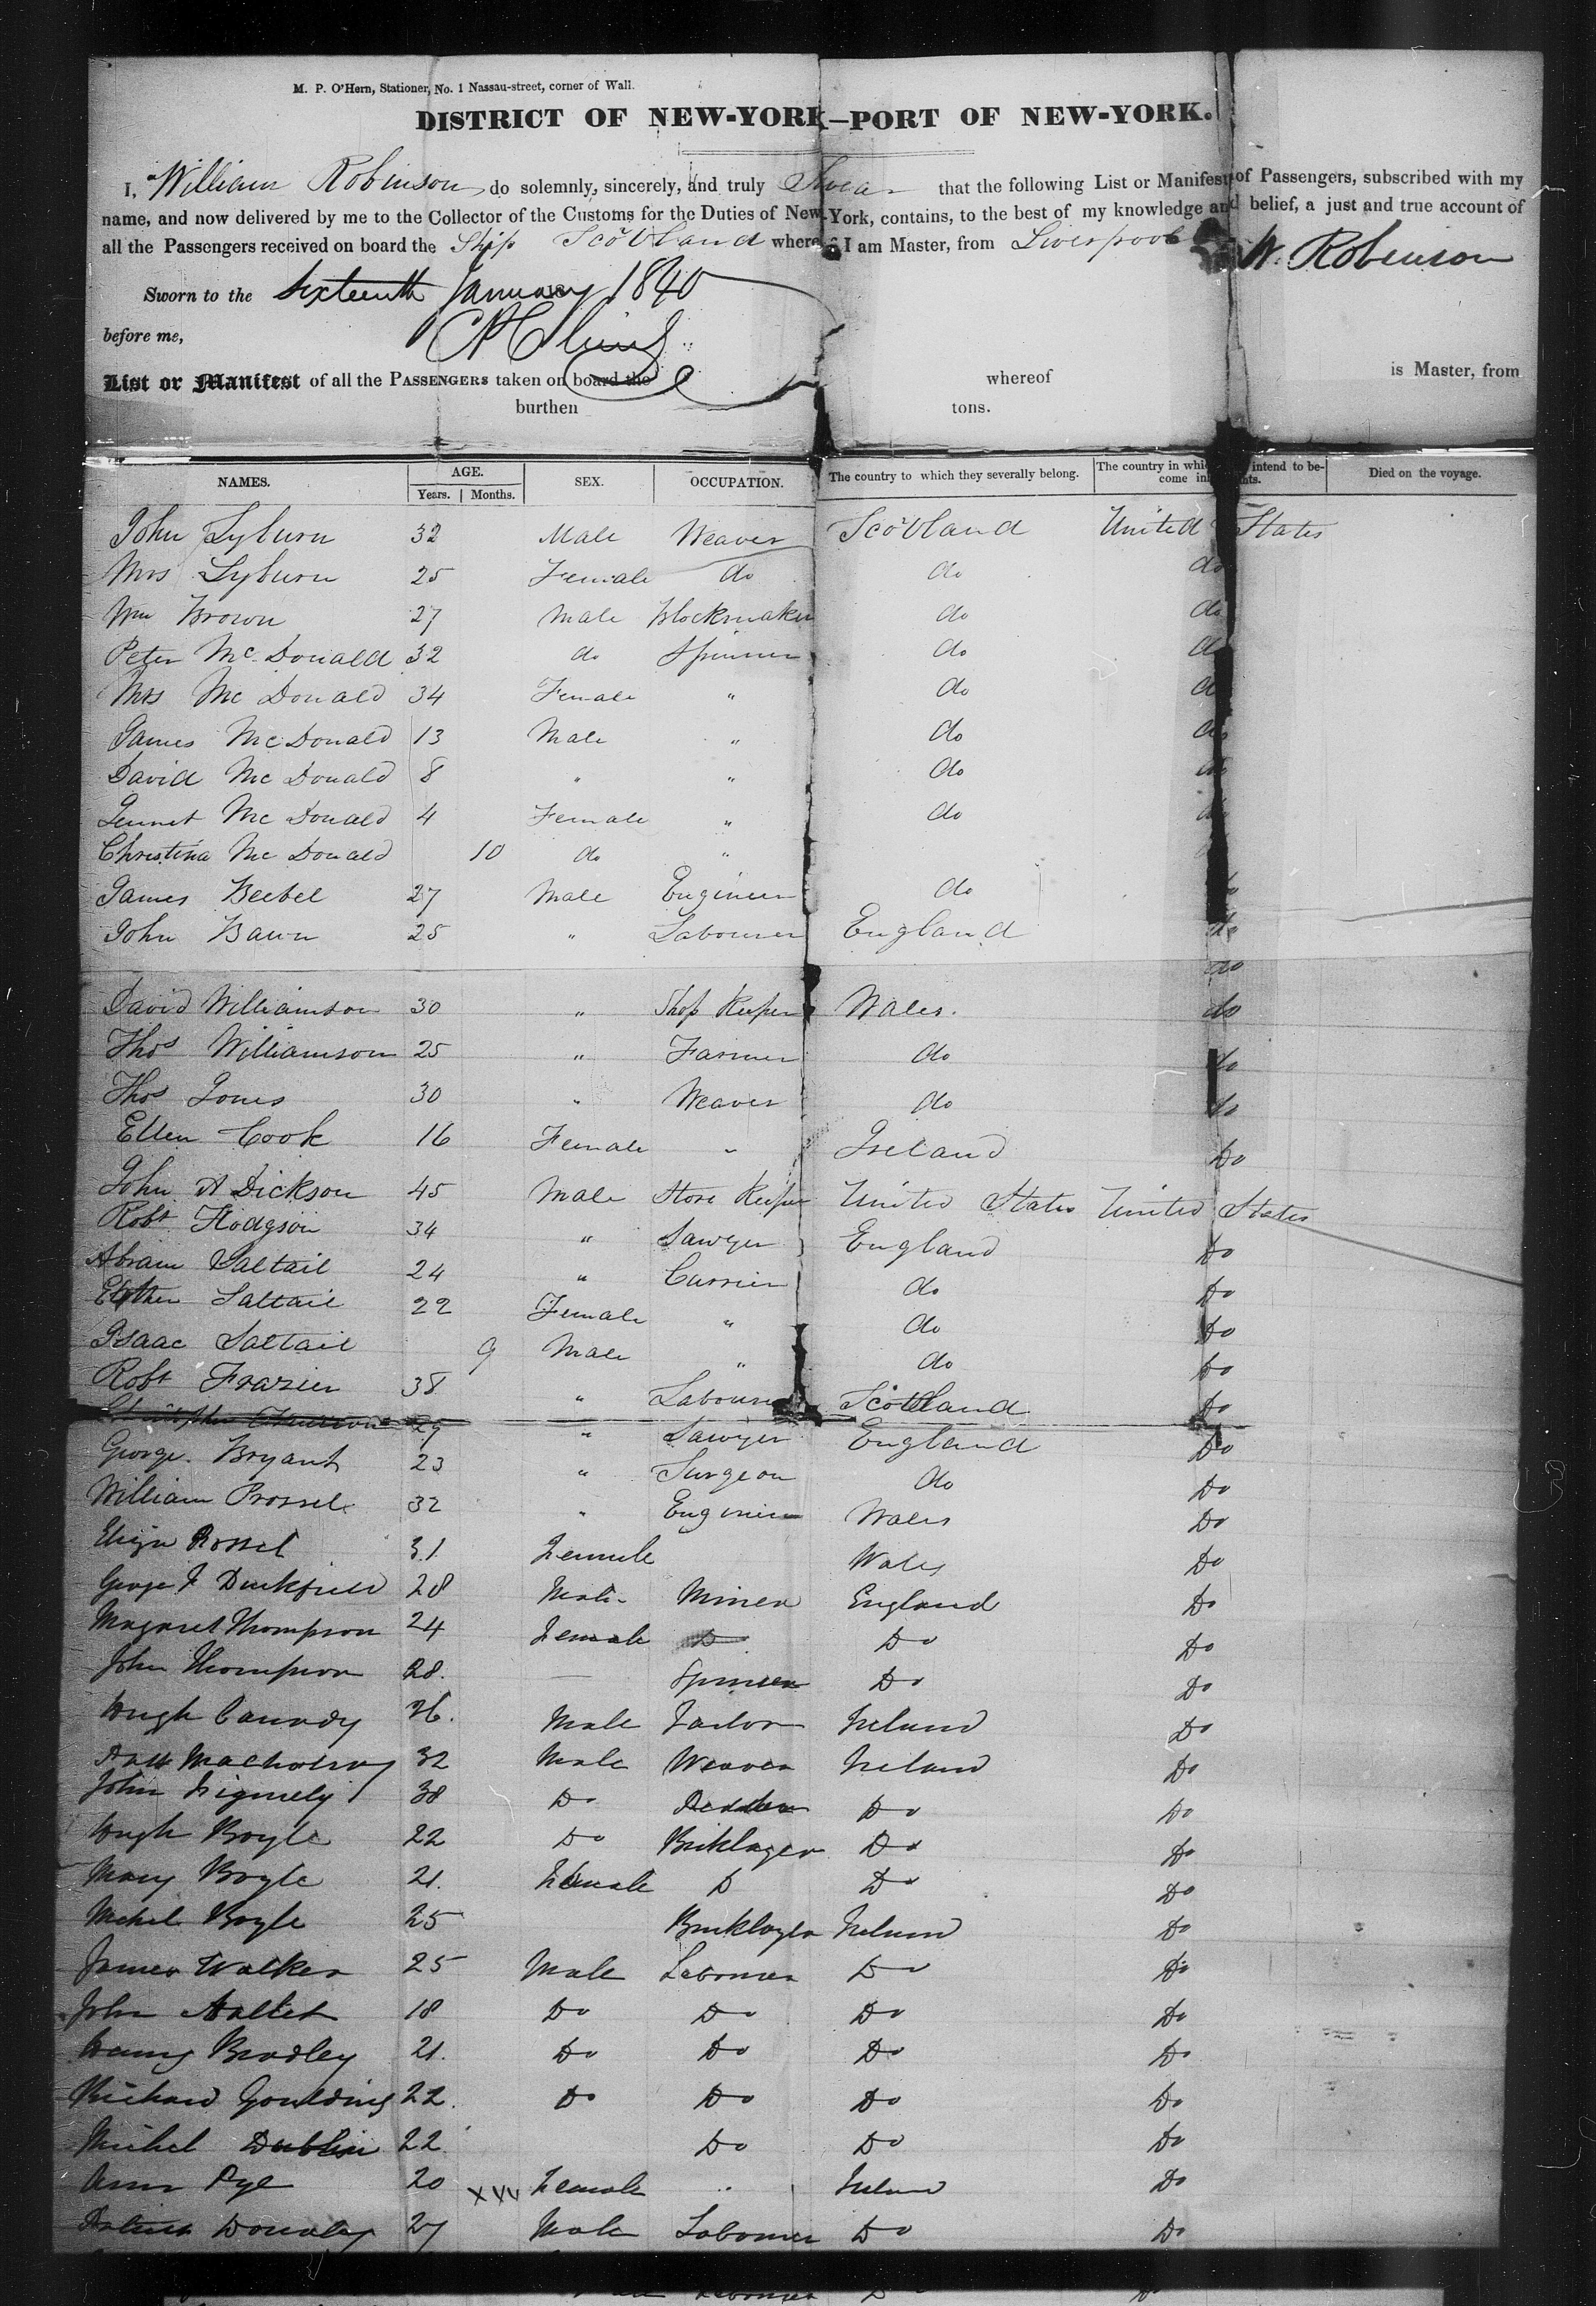 M. P. O'Hern, Stationer, No. 1 Nassau-street, corner of Wall.
DISTRICT OF NEW-YORK—PORT OF NEW-YORK.
I, William Robinson, do solemnly, sincerely, and truly Swear that the following List or Manifest of Passengers, subscribed with my
name, and now delivered by me to the Collector of the Customs for the Duties of New-York, contains, to the best of my knowledge and belief, a just and true account of
all the Passengers received on board the Ship Scotland where I am Master, from Liverpool W. Robinson
Sworn to the Sixteenth January 1840
before me,
List or Manifest of all the PASSENGERS taken on board the whereof is Master, from
burthen tons.
NAMES. AGE. SEX. OCCUPATION. The country to which they severally belong. The country in whi intend to be- Died on the voyage.
Years. Months. come in nts.
John Lyburn 32 Male Weaver Scotland United States
Mrs Lyburn 25 Female do do do
Wm Brown 27 Male Blockmaker do do
Peter McDonald 32 do Spinner do do
Mrs McDonald 34 Female " do do
James McDonald 13 Male " do do
David McDonald 8 " " do do
Jennet McDonald 4 Female " do do
Christina McDonald 10 do "
James Beebel 27 Male Engineer do do
John Bawn 25 " Labourer England do
do
David Williamson 30 " Shop Keeper Wales. do
Thos Williamson 25 " Farmer do do
Thos Jones 30 " Weaver do do
Ellen Cook 16 Female " Ireland Do
John A Dickson 45 Male Store Keeper United States United States
Robt Hodgson 34 " Sawyer England Do
Abram Saltail 24 " Currier do Do
Esther Saltail 22 Female " do Do
Isaac Saltail 9 Male " do Do
Robt Frazier 38 " Labourer Scotland Do
29 " Sawyer England Do
George Bryant 23 " Surgeon do Do
William Prossel 32 " Engineer Wales Do
Eliza Rossel 31 Female Wales Do
George J Duckfield 28 Male Miner England Do
Margaret Thompson 24 Female D Do Do
John Thompson 28. — Spinner Do Do
Hugh Canady 26. Male Tailor Ireland Do
32 Male Weaver Ireland Do
John 38 Do Do Do
Hugh Boyle 22 Do Bricklayer Do Do
Mary Boyle 21. Female D Do Do
Michel Boyle 25 Bricklayer Ireland Do
James Walker 25 Male Labourer Do Do
John Hallet 18 Do Do Do Do
Henry Bradley 21. Do Do Do Do
Richard Goulding 22. Do Do Do Do
Michel Dublin 22. Do Do Do
Ann Pye 20 Female " Ireland Do
27 Male Labourer Do Do
Labourer Do Do